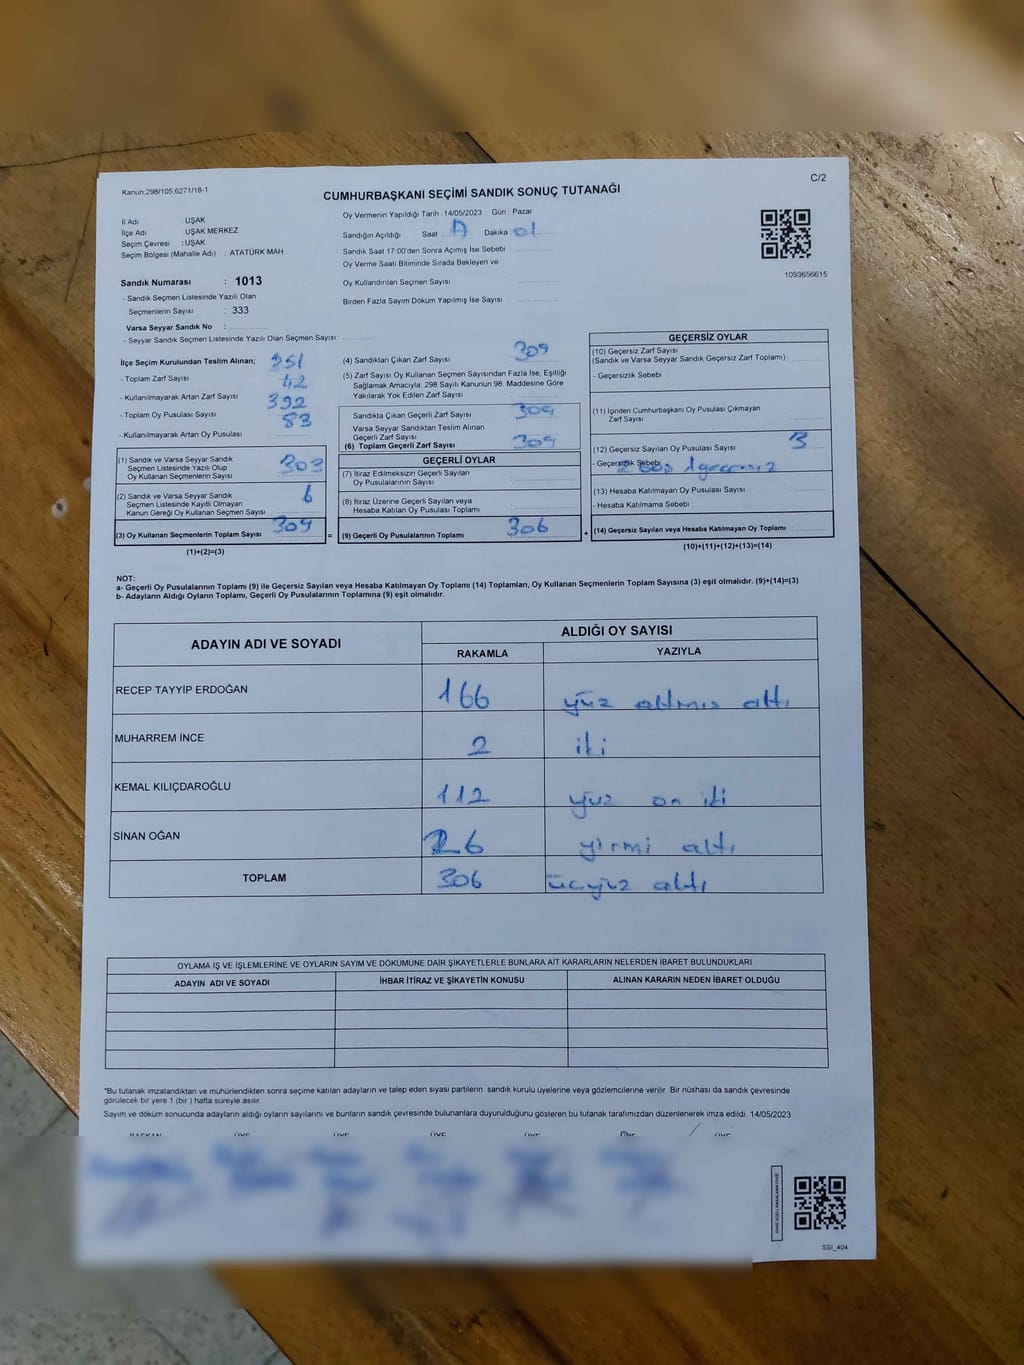 Kanun:298/105,6271/18-1
C/2
CUMHURBAŞKANI SEÇİMİ SANDIK SONUÇ TUTANAĞI
İl Adı : UŞAK
İlçe Adı : UŞAK MERKEZ
Seçim Çevresi : UŞAK
Seçim Bölgesi (Mahalle Adı) : ATATÜRK MAH
Oy Vermenin Yapıldığı Tarih : 14/05/2023 Gün : Pazar
Sandığın Açıldığı Saat Dakika 01
Sandık Saat 17:00'den Sonra Açımış İse Sebebi :
Oy Verme Saati Bitiminde Sırada Bekleyen ve
Oy Kullandırılan Seçmen Sayısı :
Birden Fazla Sayım Döküm Yapılmış İse Sayısı :
1093656615
Sandık Numarası : 1013
- Sandık Seçmen Listesinde Yazılı Olan
Seçmenlerin Sayısı : 333
Varsa Seyyar Sandık No :
- Seyyar Sandık Seçmen Listesinde Yazılı Olan Seçmen Sayısı :
İlçe Seçim Kurulundan Teslim Alınan;
- Toplam Zarf Sayısı 351
- Kullanılmayarak Artan Zarf Sayısı 42
- Toplam Oy Pusulası Sayısı 392
- Kullanılmayarak Artan Oy Pusulası 83
(1) Sandık ve Varsa Seyyar Sandık
Seçmen Listesinde Yazılı Olup
Oy Kullanan Seçmenlerin Sayısı 303
(2) Sandık ve Varsa Seyyar Sandık
Seçmen Listesinde Kayıtlı Olmayan
Kanun Gereği Oy Kullanan Seçmen Sayısı 6
(3) Oy Kullanan Seçmenlerin Toplam Sayısı 309 =
(1)+(2)=(3)
(4) Sandıktan Çıkan Zarf Sayısı 309
(5) Zarf Sayısı Oy Kullanan Seçmen Sayısından Fazla İse, Eşitliği
Sağlamak Amacıyla; 298 Sayılı Kanunun 98. Maddesine Göre
Yakılarak Yok Edilen Zarf Sayısı :
Sandıkta Çıkan Geçerli Zarf Sayısı 309
Varsa Seyyar Sandıktan Teslim Alınan
Geçerli Zarf Sayısı :
(6) Toplam Geçerli Zarf Sayısı 309
GEÇERLİ OYLAR
(7) İtiraz Edilmeksizin Geçerli Sayılan
Oy Pusulalarının Sayısı :
(8) İtiraz Üzerine Geçerli Sayılan veya
Hesaba Katılan Oy Pusulası Toplamı :
(9) Geçerli Oy Pusulalarının Toplamı 306 +
GEÇERSİZ OYLAR
(10) Geçersiz Zarf Sayısı
(Sandık ve Varsa Seyyar Sandık Geçersiz Zarf Toplamı) :
- Geçersizlik Sebebi :
(11) İçinden Cumhurbaşkanı Oy Pusulası Çıkmayan
Zarf Sayısı :
(12) Geçersiz Sayılan Oy Pusulası Sayısı 3
- Geçersizlik Sebebi 2 boş 1 geçersiz
(13) Hesaba Katılmayan Oy Pusulası Sayısı :
- Hesaba Katılmama Sebebi :
(14) Geçersiz Sayılan veya Hesaba Katılmayan Oy Toplamı :
(10)+(11)+(12)+(13)=(14)
NOT:
a- Geçerli Oy Pusulalarının Toplamı (9) ile Geçersiz Sayılan veya Hesaba Katılmayan Oy Toplamı (14) Toplamları, Oy Kullanan Seçmenlerin Toplam Sayısına (3) eşit olmalıdır. (9)+(14)=(3)
b- Adayların Aldığı Oyların Toplamı, Geçerli Oy Pusulalarının Toplamına (9) eşit olmalıdır.
ADAYIN ADI VE SOYADI
ALDIĞI OY SAYISI
RAKAMLA YAZIYLA
RECEP TAYYİP ERDOĞAN 166 yüz altmış altı
MUHARREM İNCE 2 iki
KEMAL KILIÇDAROĞLU 112 yüz on iki
SİNAN OĞAN 26 yirmi altı
TOPLAM 306 üçyüz altı
OYLAMA İŞ VE İŞLEMLERİNE VE OYLARIN SAYIM VE DÖKÜMÜNE DAİR ŞİKAYETLERLE BUNLARA AİT KARARLARIN NELERDEN İBARET BULUNDUKLARI
ADAYIN ADI VE SOYADI İHBAR İTİRAZ VE ŞİKAYETİN KONUSU ALINAN KARARIN NEDEN İBARET OLDUĞU
*Bu tutanak imzalandıktan ve mühürlendikten sonra seçime katılan adayların ve talep eden siyasi partilerin sandık kurulu üyelerine veya gözlemcilerine verilir. Bir nüshası da sandık çevresinde
görülecek bir yere 1 (bir ) hafta süreyle asılır.
Sayım ve döküm sonucunda adayların aldığı oyların sayılarını ve bunların sandık çevresinde bulunanlara duyurulduğunu gösteren bu tutanak tarafımızdan düzenlenerek imza edildi. 14/05/2023
BAŞKAN ÜYE ÜYE ÜYE ÜYE ÜYE
SSI_404